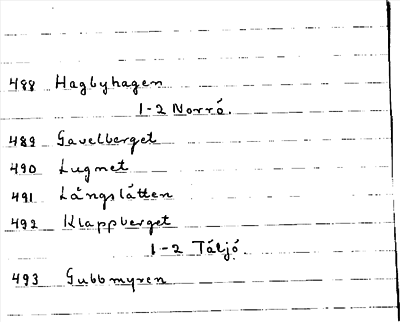 488 Hagbyhagen
1-2 Norrö.
489 Gavelberget
490 Lugnet
491 Långslätten
492 Klappberget
1-2 Täljö.
493 Gubbmyren